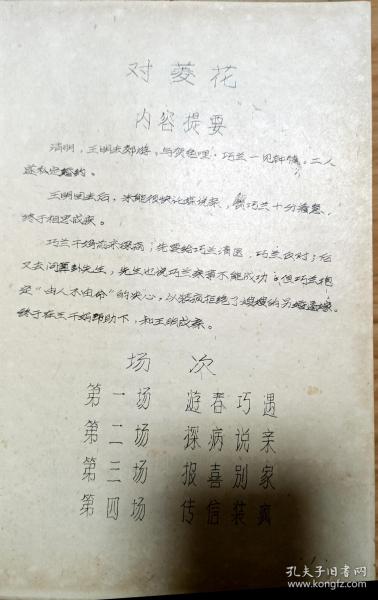 对菱花
内容提要
清明，王明去郊游，与贺巧兰一见钟情。二人
遂私定婚约。
王明回去后，未能很快化媒说亲，贺巧兰十分着急，
终于相思成疾。
巧兰干妈前来探病；先要给巧兰请医，巧兰反对；后
又去问算卦先生，先生也说巧兰亲事不能成功。但巧兰抱
定“由人不由命”的决心，以装疯拒绝了嫂嫂的另婚
终于在兰干妈帮助下，和王明成亲。
场 次
第一场 游春巧遇
第二场 探病说亲
第三场 报喜别家
第四场 传信装疯
孔夫子旧书网